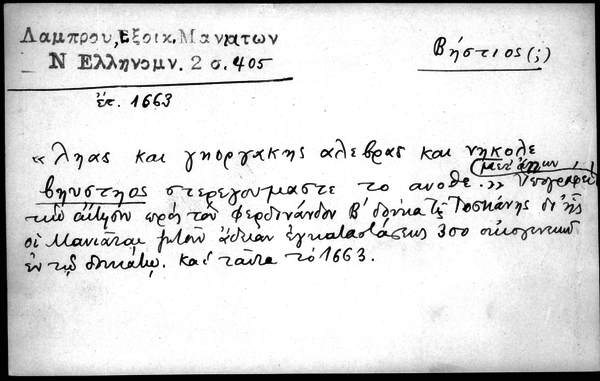 Λαμπρου, Εξοικ. Μανιατων
Ν Ελληνομν. 2 σ. 405
Βήστιος (;)
ἐτ. 1663
« λιας και γηοργακης αλεβρας και νηκολε
βηυστηος στερεγουμαστε το ανοθε. » μετ' άλλων Υπογράφει
την αίτησιν πρός τόν Φερδινάνδον Β' δούκα τῆς Τοσκάνης δι' ἧς
οἱ Μανιάται ζητοῦν ἄδειαν ἐγκαταστάσεως 300 οἰκογενειῶν
ἐν τῷ δουκάτῳ. Κατά τὸ 1663.